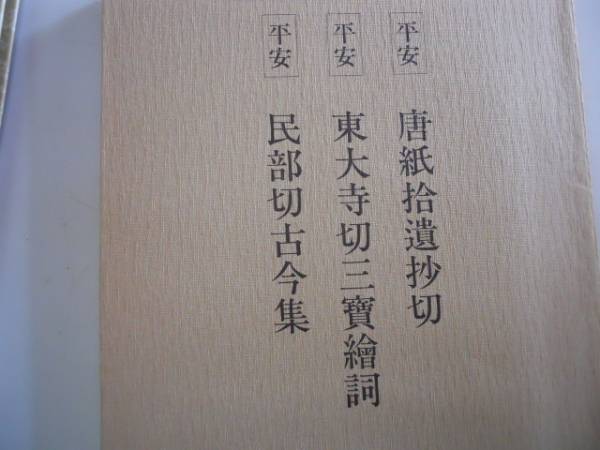 平安 唐紙拾遺抄切
平安 東大寺切三寶繪詞
平安 民部切古今集